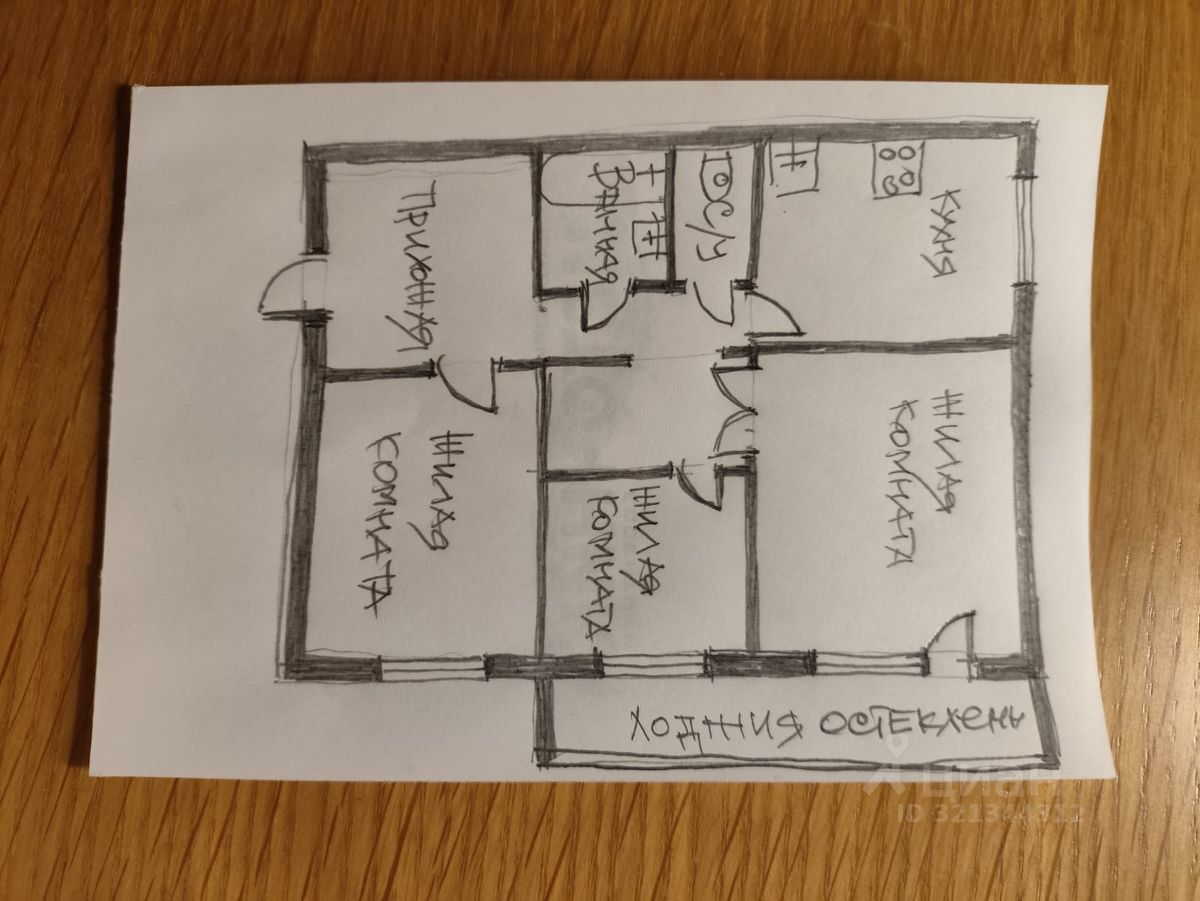 ПРИХОЖАЯ
ВАННАЯ
С/У
КУХНЯ
ЖИЛАЯ
КОМНАТА
ЖИЛАЯ
КОМНАТА
ЖИЛАЯ
КОМНАТА
ЛОДЖИЯ ОСТЕКЛЕНА
Циан
ID 321344312